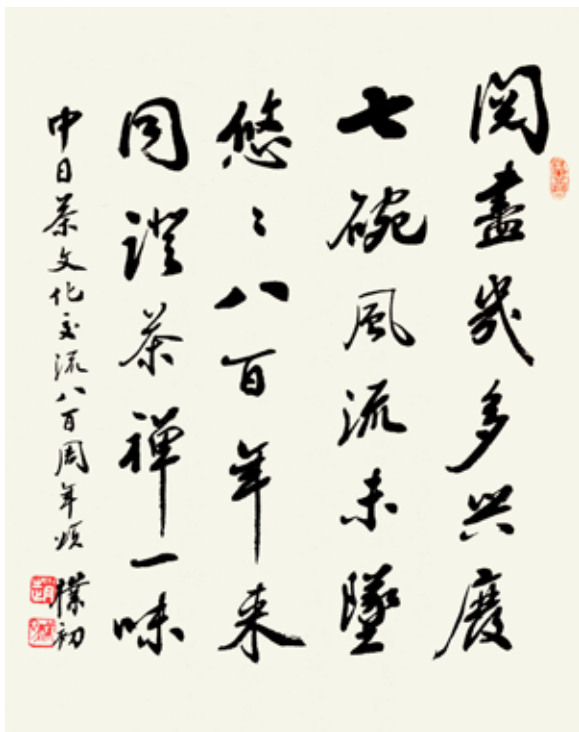 閱盡幾多兴廢
七碗風流未墜
悠〻八百年来
同證茶禪一味
中日茶文化交流八百周年頌 樸初